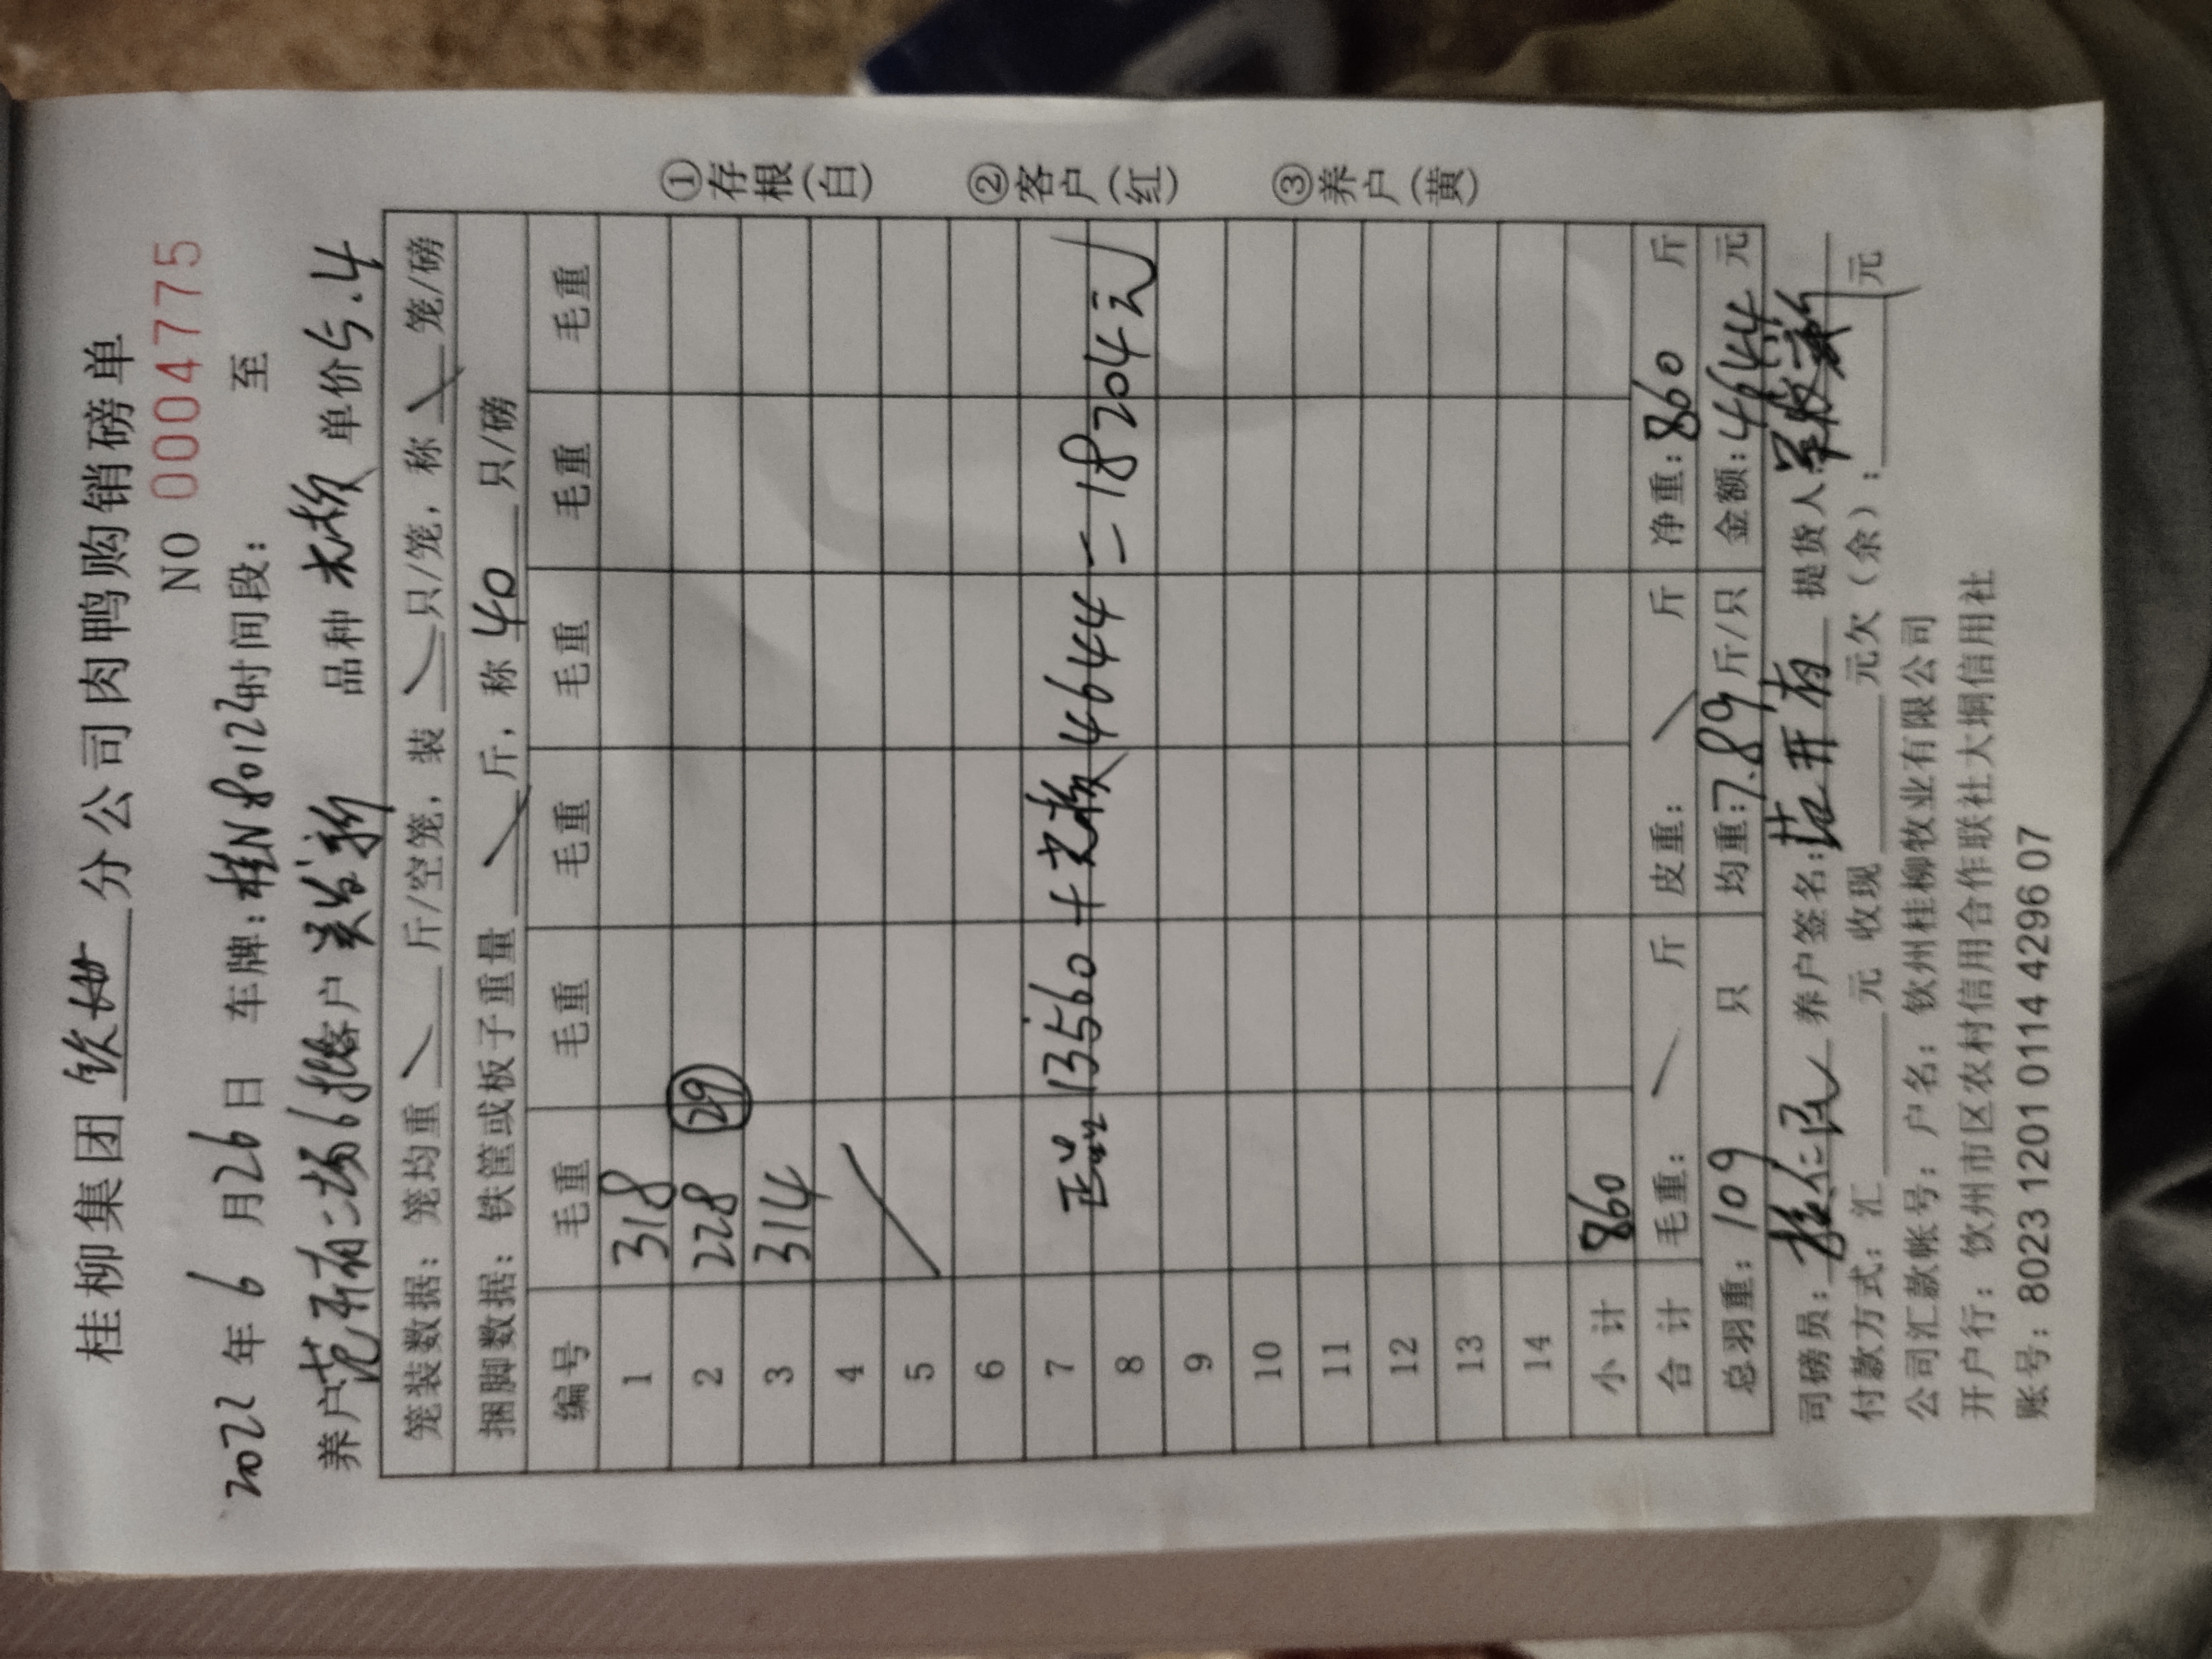 桂柳集团 钦州 分公司肉鸭购销磅单
NO 0004775
2022 年 6 月 26 日 车牌:桂N80124 时间段: 至
养户范开有二场6批 客户 关岁新 品种 单价5.4
笼装数据:笼均重 斤/空笼,装 只/笼,称 笼/磅
捆脚数据:铁筐或板子重量 斤,称 40 只/磅
编号 毛重 毛重 毛重 毛重 毛重 毛重
1 318
2 228 29
3 314
4
5
6
7 正品 13560 + 4644 = 18204元
8
9
10
11
12
13
14
小计 860
合计 毛重: 斤 皮重: 斤 净重:860 斤
总羽重:109 只 均重:7.89 斤/只 金额:4644 元
司磅员: 养户签名:范开有 提货人
付款方式:汇 元 收现 元欠(余): 元
公司汇款帐号:户名:钦州桂柳牧业有限公司
开户行:饮州市区农村信用合作联社大垌信用社
账号:8023 1201 0114 4296 07
①存根(白) ②客户(红) ③养户(黄)